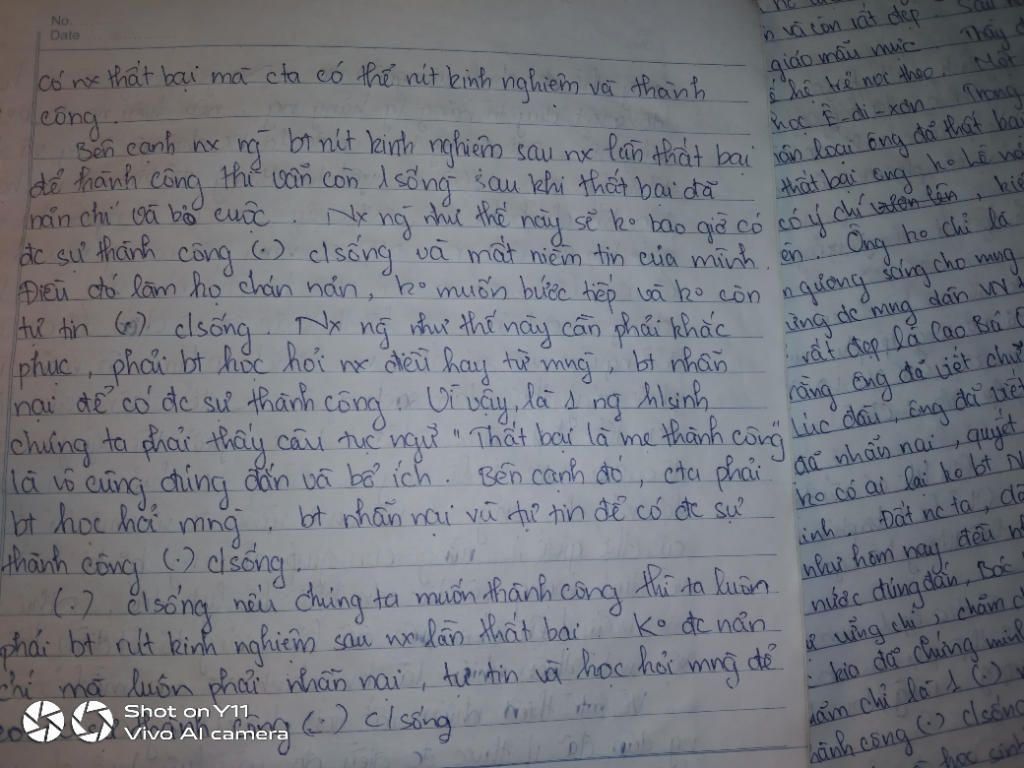 No.
Date
có nx thất bại mà cta có thể rút kinh nghiệm và thành
công.
Bên cạnh nx ng̃ bt rút kinh nghiệm sau nx lần thất bại
để thành công thì vẫn còn 1 sống sau khi thất bại đã
nản chí và bỏ cuộc. Nx ng̃ như thế này sẽ ko bao giờ có
đc sự thành công (.) c/sống và mất niềm tin của mình.
Điều đó làm họ chán nản, ko muốn bước tiếp và ko còn
tự tin (.) c/sống. Nx ng̃ như thế này cần phải khắc
phục, phải bt học hỏi nx điều hay từ mng̃, bt nhẫn
nại để có đc sự thành công. Vì vậy, là 1 ng h/sinh
chúng ta phải thấy câu tục ngữ "Thất bại là mẹ thành công"
là vô cùng đúng đắn và bổ ích. Bên cạnh đó, cta phải
bt học hỏi mng̃, bt nhẫn nại và tự tin để có đc sự
thành công (.) c/sống.
(.) c/sống nếu chúng ta muốn thành công thì ta luôn
phải bt rút kinh nghiệm sau nx lần thất bại. Ko đc nản
chí mà luôn phải nhẫn nại, tự tin và học hỏi mng̃ để
thành công (.) c/sống
Shot on Y11
Vivo AI camera
n và còn rất đẹp. Sau
giáo mẫu mực. Thầy
hệ trẻ noi theo. Một
học Ê-đi-xơn. Trong
nhân loại ông đã thất bại
thất bại ông ko hề
có ý chí vươn lên,
ên. Ông ko chỉ là
gương sáng cho mng
ừng đc mng dân VN
rất đẹp là Cao Bá
rằng ông đã viết chữ
lúc đầu, ông đã viết
đã nhẫn nại, quyết
ko có ai lại ko bt
inh. Đất nc ta,
như hôm nay đều
nước đúng đắn, Bác
uống chỉ, chăm
đã chứng minh
dẫm chỉ là 1 (.)
hành công (.) c/sống
học sinh